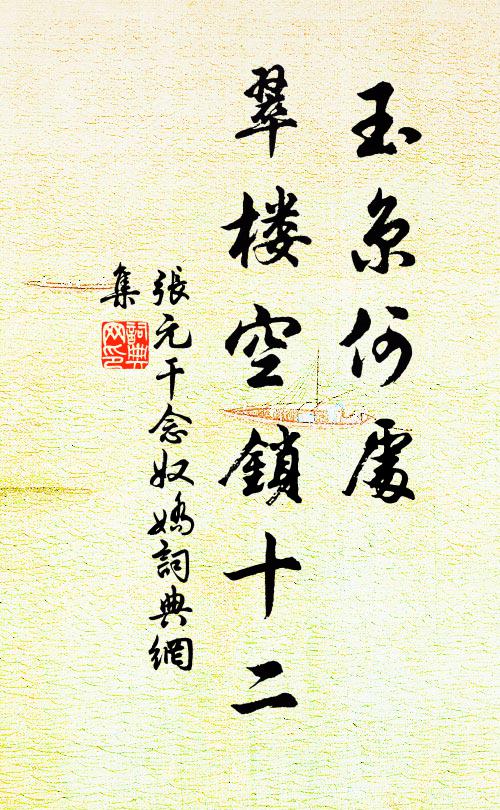 玉京何處
翠楼空鎖十二
張元干念奴嬌詞典網
集
詞典網印